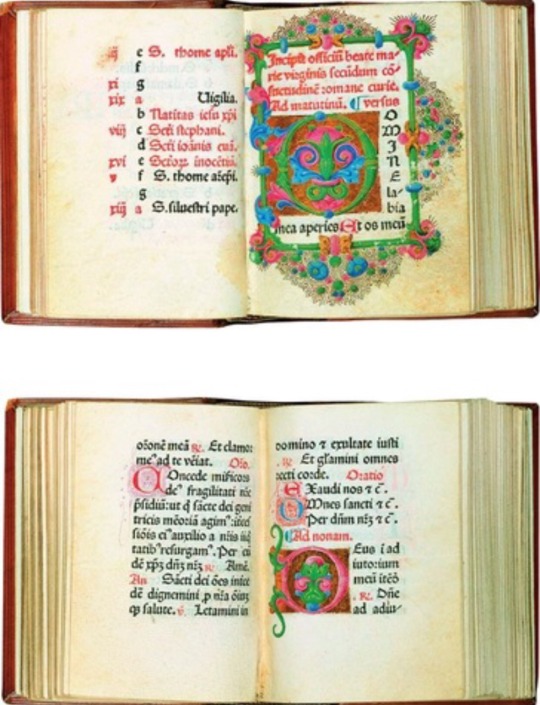 iij e S. thome apli.
f
xi g
xix a Uigilia.
b Natiitas iesu xpi
viij c Scti stephani.
d Scti ioānis euā.
xvi e Sctoꝝ inocētiū.
v f S. thome aēepi.
g
xiij a S. siluestri pape.
Incipit officiū beate ma-
rie virginis secūdum cō-
suetudinē romane curie.
Ad matutinū. versus
DO
M
I
N
E
la-
bia
mea aperies Et os meū
ořonē meā ℞. Et clamor
me⁹ ad te vēiat. Ořo.
COncede misicors
de⁹ fragilitati nře
p̄sidiū: ut q̇ sācte dei geni
tricis mēoriā agim⁹: ītēr
sidīs ei⁹ auxilio a nr̄is iīq
tatib⁹ resurgam⁹. Per eū
dē xp̄ꝫ dn̄ꝫ nr̄ꝫ ℞. Amē.
An Sācti dei oēs īnīce
dē dignemini ꝓ nr̄a oīuꝫ
ꝙ salute. v. Letamini in
domino ⁊ exultate iusti
℞. Et glamini omnes
recti corde. Oratio
EXaudi nos ⁊ č.
OMnes sancti ⁊ č.
Per dn̄m nr̄ꝫ ⁊ č.
Ad nonam.
DEus ī ad
iutorium
meū ītēō
℞. Dn̄e
ad adiu-